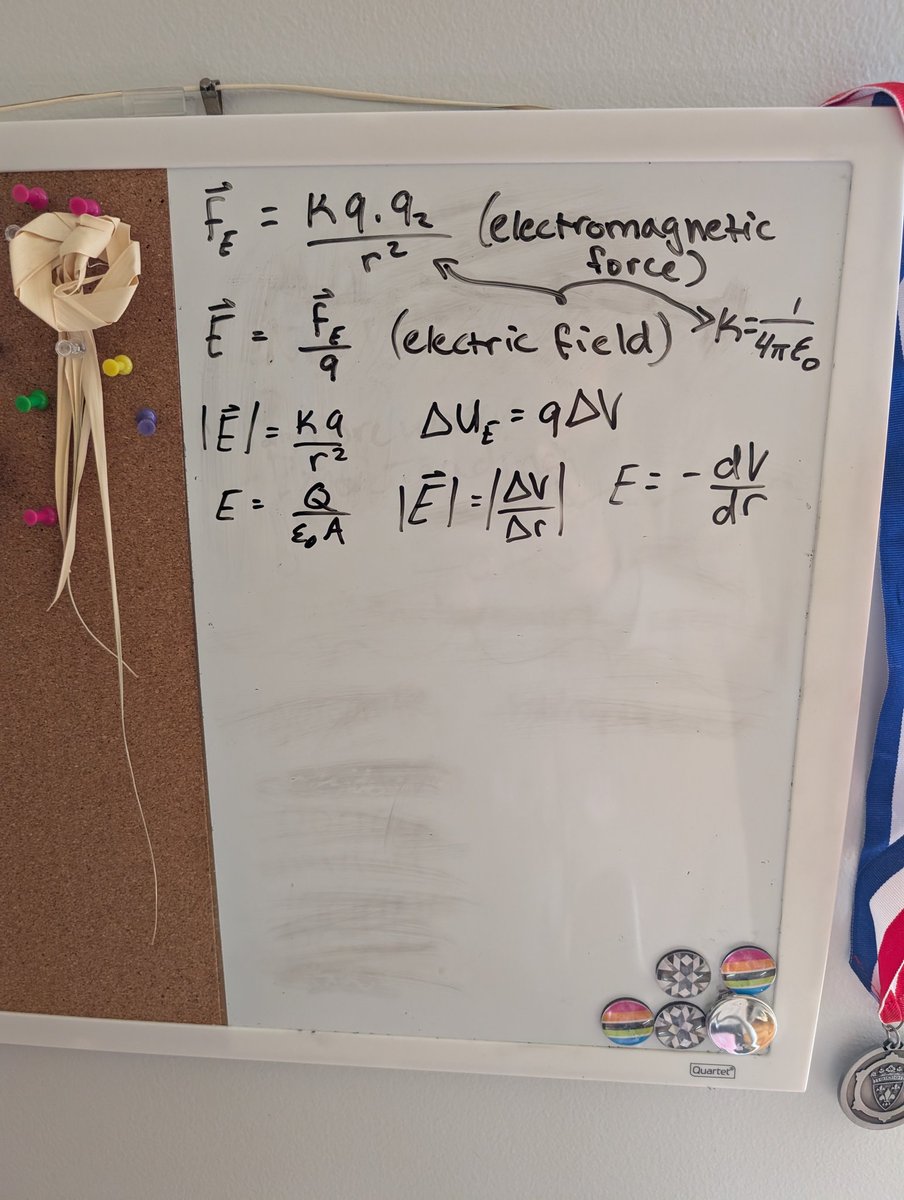 F⃗_E = K q₁ q₂ / r² (electromagnetic
force)
E⃗ = F⃗_E / q (electric field) K = 1 / 4πε₀
|E⃗| = K q / r² ΔU_E = qΔV
E = Q / ε₀A |E⃗| = |ΔV / Δr| E = - dV / dr
Quartet